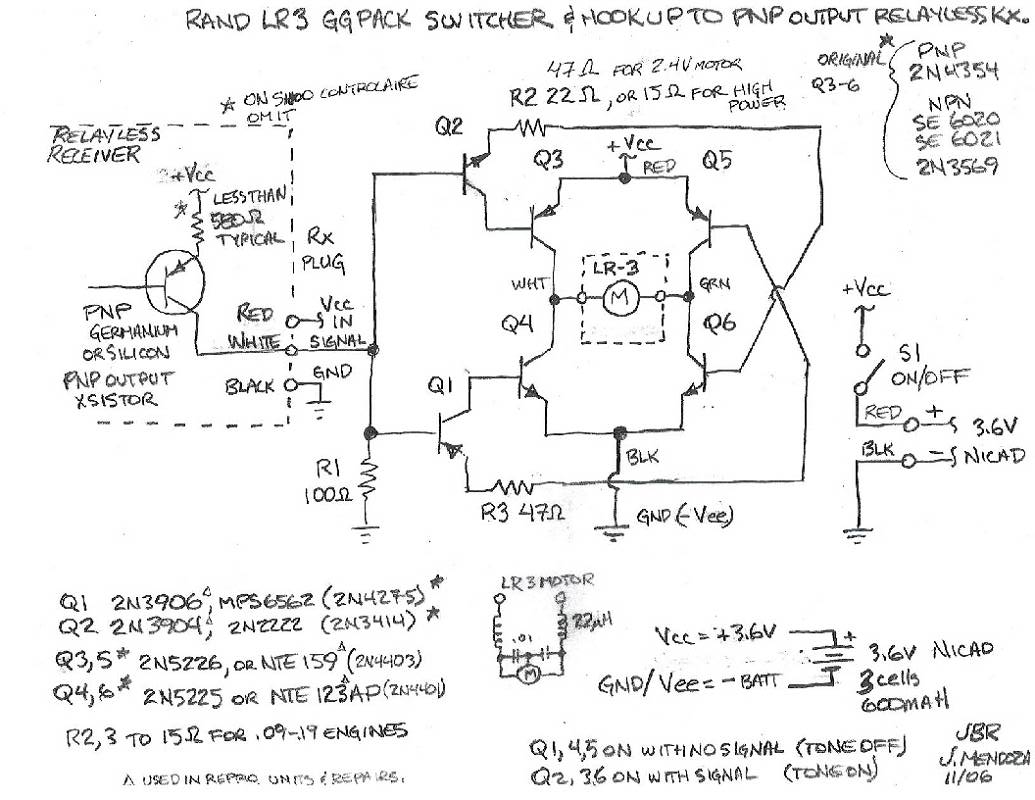 RAND LR3 GGPACK SWITCHER & HOOKUP TO PNP OUTPUT RELAYLESS RX.
47Ω FOR 2.4V MOTOR
R2 22Ω, OR 15Ω FOR HIGH POWER
ORIGINAL *
Q3-6
PNP
2N4354
NPN
SE 6020
SE 6021
2N3569
* ON S1400 CONTROLAIRE
OMIT
RELAYLESS
RECEIVER
+Vcc
*
LESS THAN
560Ω
TYPICAL
RX
PLUG
PNP
GERMANIUM
OR SILICON
PNP OUTPUT
XSISTOR
RED
Vcc
IN
WHITE
SIGNAL
BLACK
GND
Q2
Q3
+Vcc
RED
Q5
WHT
LR-3
M
GRN
Q4
Q6
Q1
BLK
R1
100Ω
R3 47Ω
GND (-Vee)
+Vcc
S1
ON/OFF
RED
+
3.6V
BLK
-
NICAD
Q1 2N3906△, MPS6562 (2N4275)*
Q2 2N3904△, 2N2222 (2N3414)*
Q3,5* 2N5226, OR NTE 159△ (2N4403)
Q4,6* 2N5225 OR NTE 123AP△ (2N4401)
R2,3 TO 15Ω FOR .09-19 ENGINES
△ USED IN REPRO UNITS & REPAIRS.
LR3 MOTOR
22µH
.01
M
Vcc = +3.6V
+
GND/Vee = -BATT
3.6V NICAD
3 cells
600MAH
Q1,4,5 ON WITH NO SIGNAL (TONE OFF)
Q2,3,6 ON WITH SIGNAL (TONE ON)
JBR
J. MENDOZA
11/06